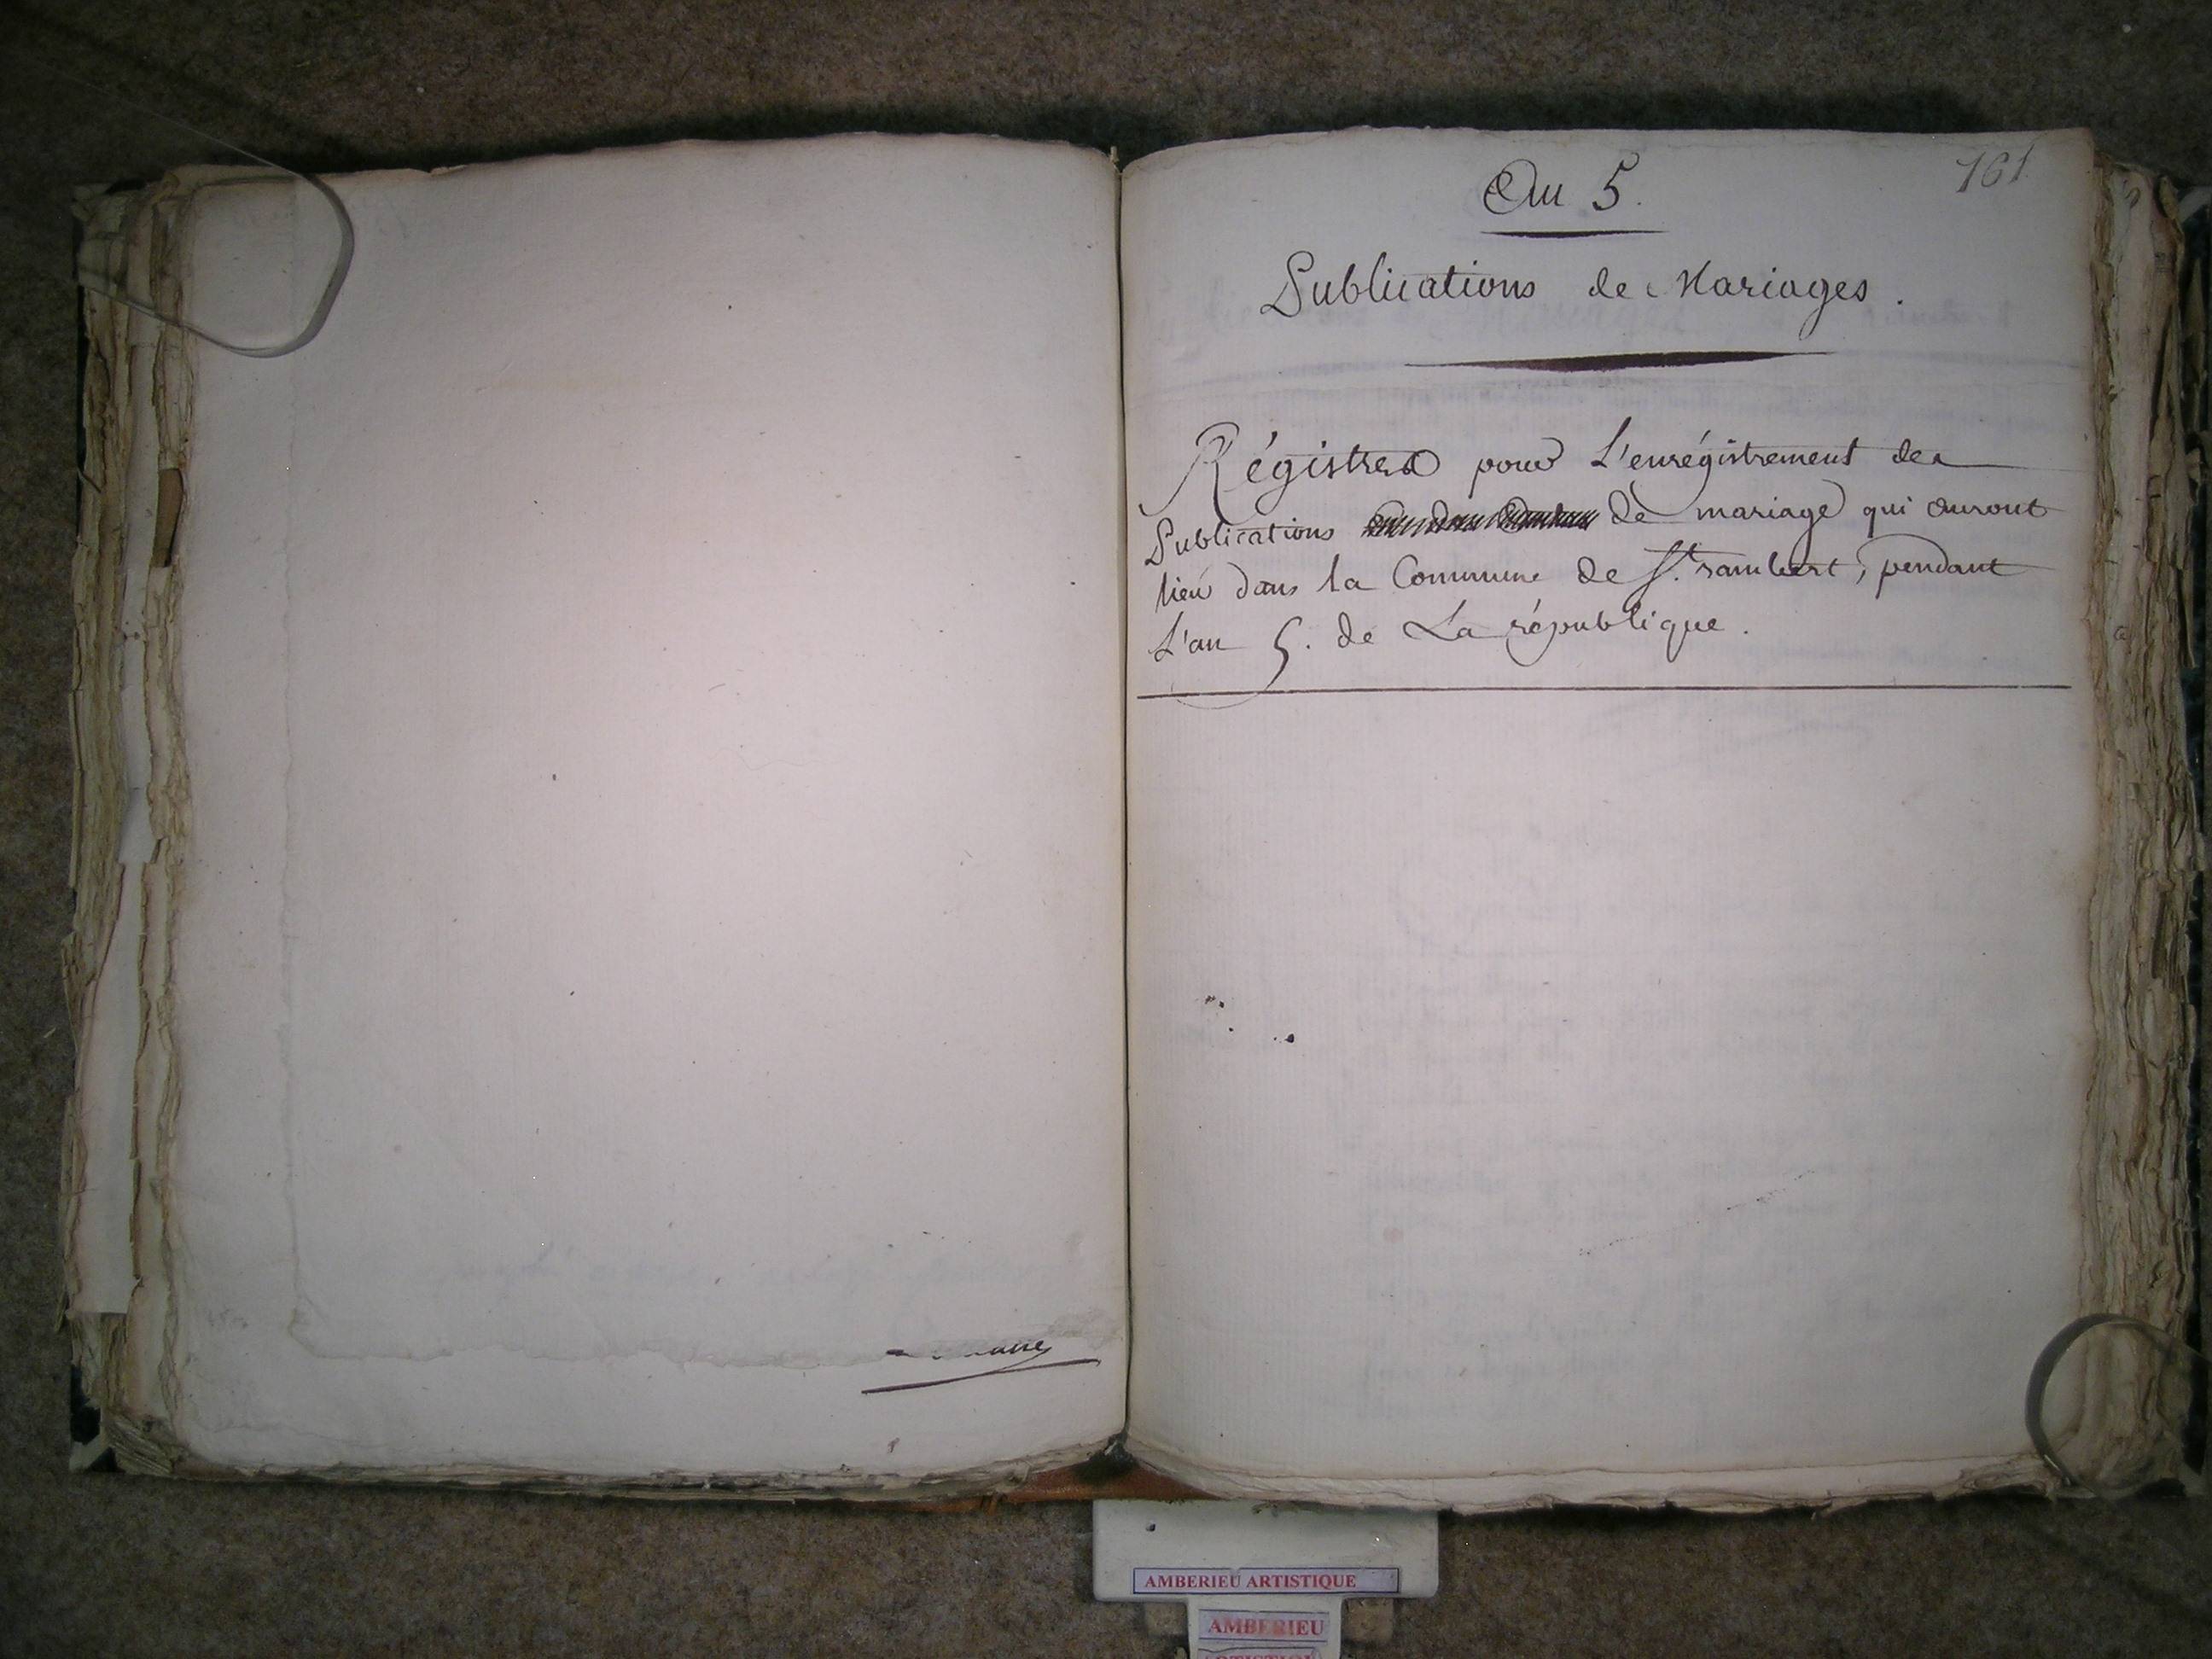 161
An 5.
Publications de Mariages.
Régistre pour L'enrégistrement des
Publications de mariage qui auront
lieu dans la Commune de St. rambert, pendant
L'an 5. de La république.
AMBERIEU ARTISTIQUE
AMBERIEU
ARTISTIQUE